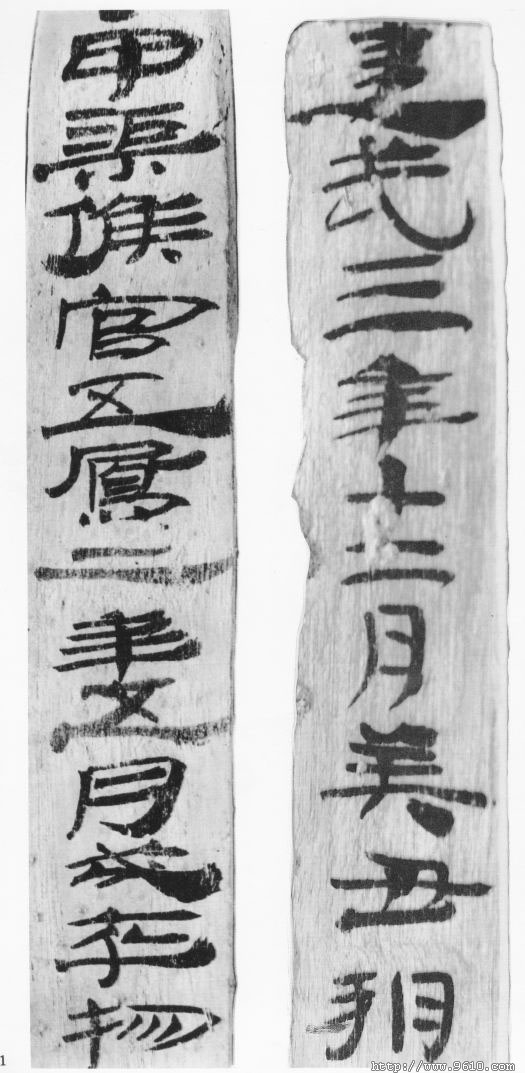 建武三年十二月癸丑朔
甲渠候官五鳳二年五月
1
http://www.9610.com